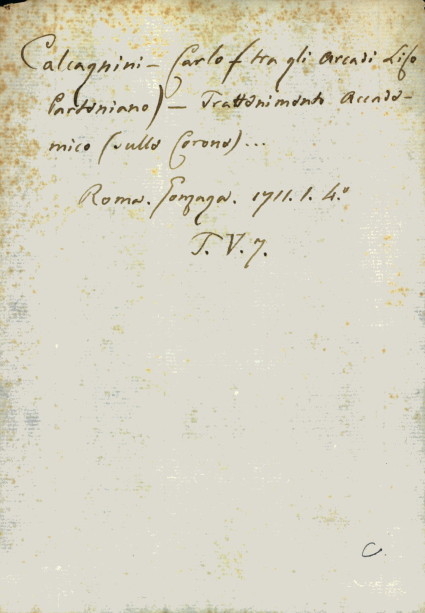 Calcagnini – Carlo (tra gli Arcadi Liso
Parteniano) – Trattenimento Accade-
mico (sulle Corone)...
Roma. Gonzaga. 1711. 1. 4.º
T. V. 7.
C.